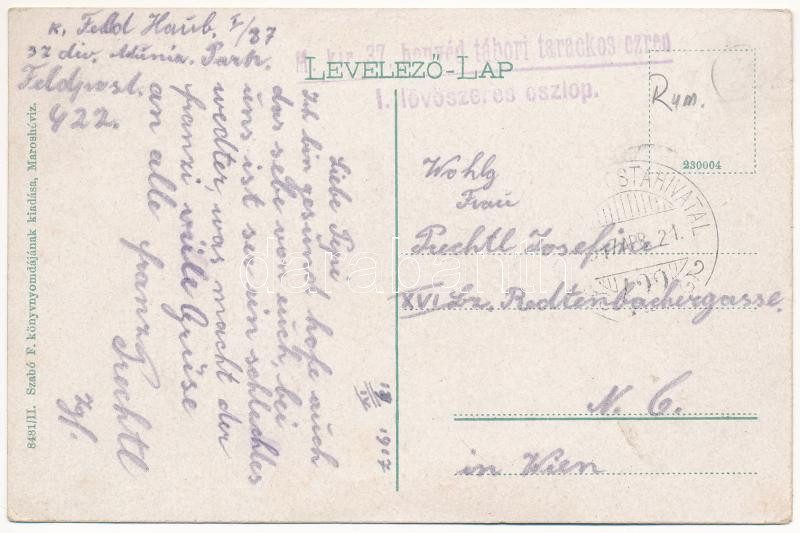 k. Feld Haub. I/37
37 div. Munin. Park.
Feldpost.
422.
M. kir. 37. honvéd tábori tarackos ezred
LEVELEZŐ-LAP
1. lövőszeres oszlop.
Rum.
230004
Liebe Pepi
Ich bin gesund, hofe auch
das selbe von euch, bei
uns ist so ein schlechtes
wedter, was macht der
franzi viele Grüse
an alle franz
Prechtl
Zgf.
18/IV 1917
Wohlg
Frau
Prechtl Josefine
XVI. Bz. Redtenbachergasse.
N. 6.
in Wien
TÁBORI POSTAHIVATAL
17 APR. 21.
422
8481/II. Szabó F. könyvnyomdájának kiadása, Maroshéviz.
darabanth.com